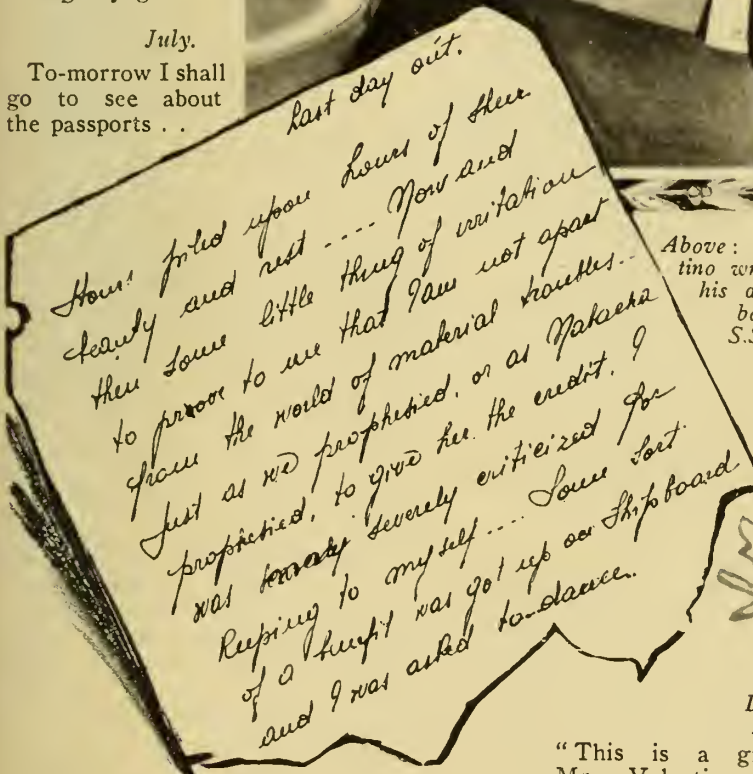 July.
To-morrow I shall
go to see about
the passports . .
Last day out.
Hours piled upon hours of sheer
beauty and rest .... Now and
then some little thing of irritation
to prove to me that I am not apart
from the world of material troubles..
Just as we prophesied, or as Natacha
prophesied, to give her the credit, I
was severely criticized for
keeping to myself .... Some sort
of a benefit was got up on shipboard
and I was asked to dance.
Above:
tino wr
his a
be
S.S
"This is a g